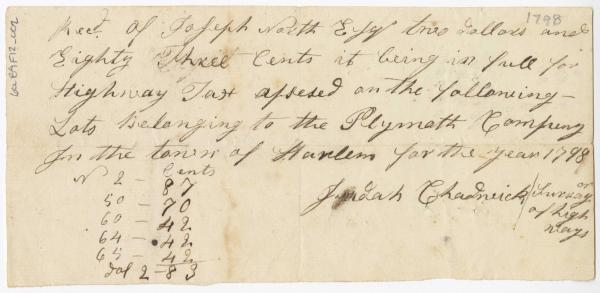 1798
Recd. of Joseph North Esqr two dollars and
Eighty Three Cents it being in full for
Highway Tax assesed on the following
Lots Belonging to the Plymoth Compeny
In the town of Harlem for the year 1798
N 2 - Cents 87
50 - 70
60 - 42
64 - 42
65 - 42
dol 2 - 83
Judah Chadwick
or
Survay
of high
ways